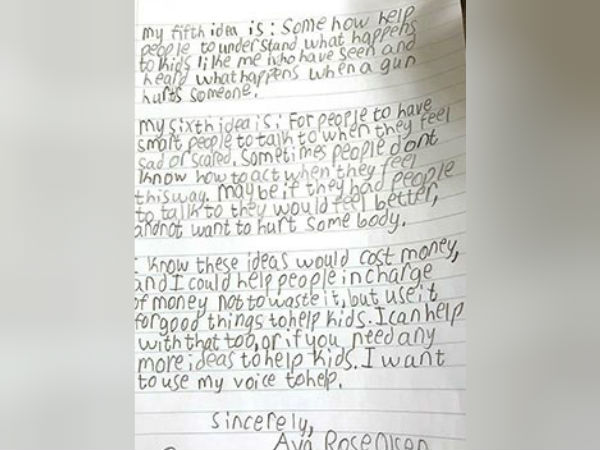 my fifth idea is: Some how help
people to understand what happens
to kids like me who have seen and
heard what happens when a gun
hurts someone.
my sixth idea is: For people to have
smart people to talk to when they feel
sad or scared. Sometimes people dont
know how to act when they feel
thisway. Maybe if they had people
to talk to they would feel better,
andnot want to hurt some body.
I know these ideas would cost money,
and I could help people in charge
of money not to waste it, but use it
for good things to help kids. I can help
with that too, or if you need any
more ideas to help kids. I want
to use my voice to help.
Sincerely,
Ava